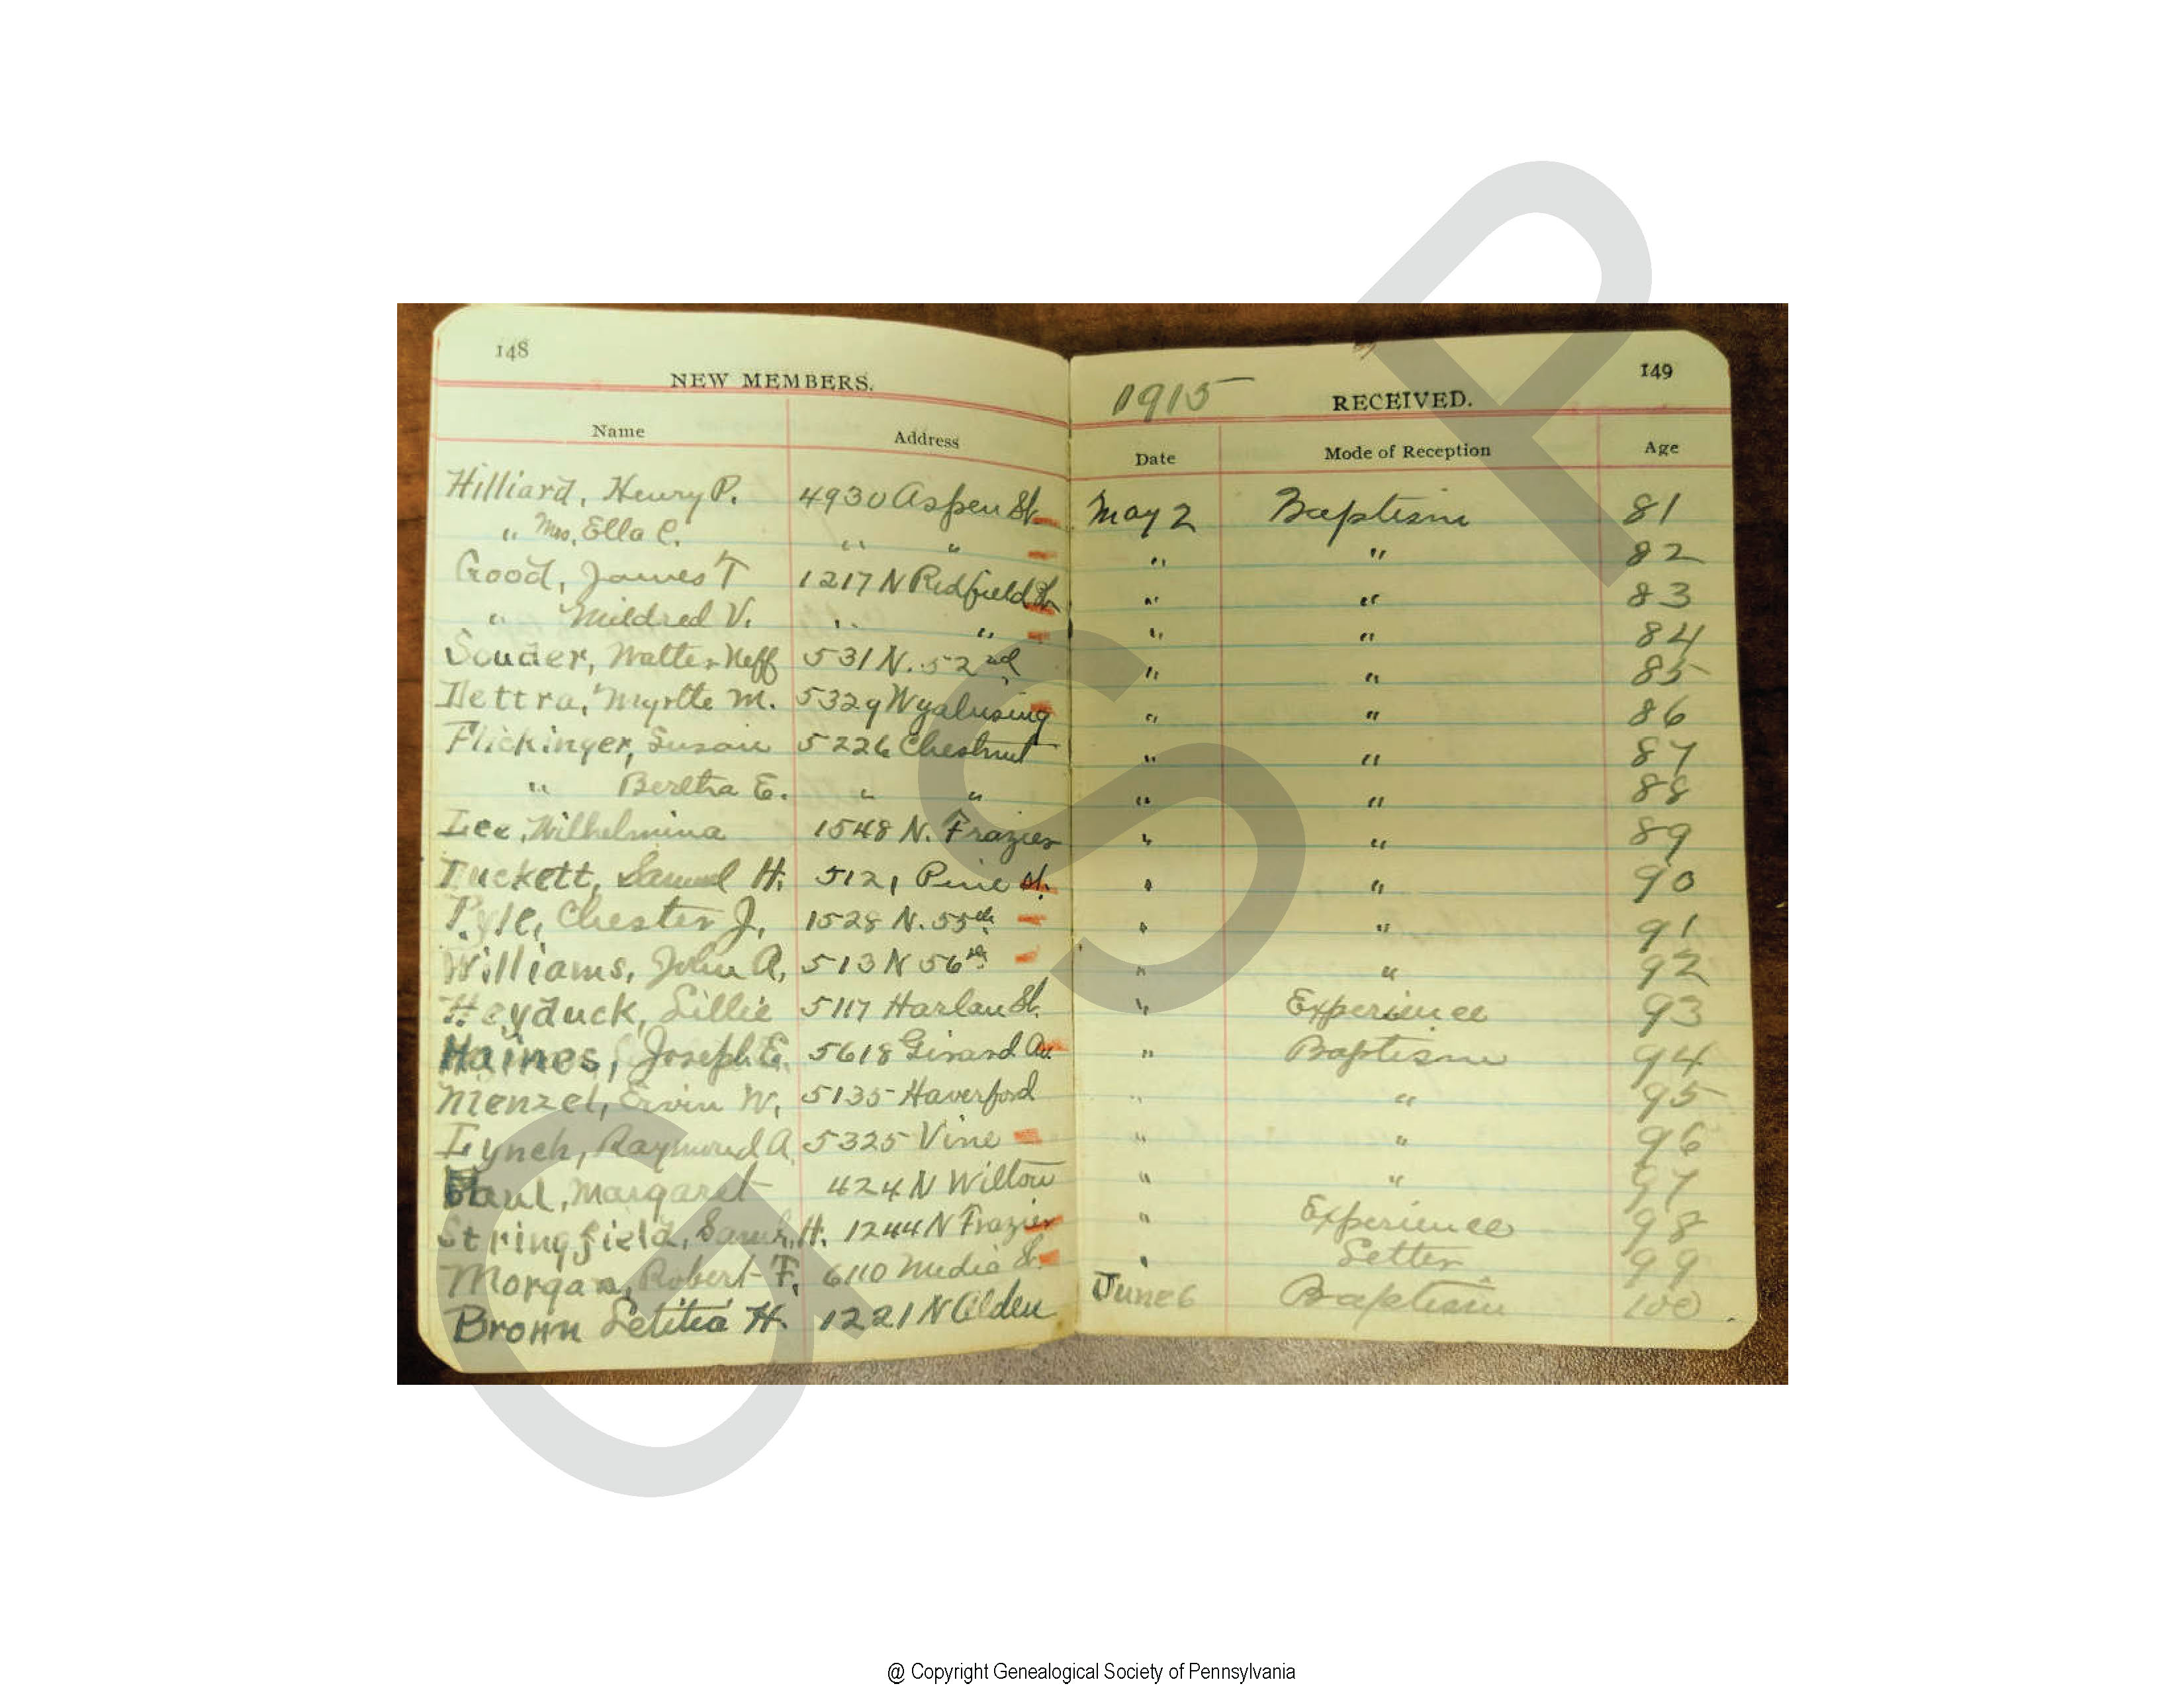 148
NEW MEMBERS.
Name Address
1915
149
RECEIVED.
Date Mode of Reception Age
Hilliard, Henry P. 4930 Aspen St. May 2 Baptism 81
" Mrs. Ella C. " " " " 82
Good, James T 1217 N Redfield St " " 83
" Mildred V. " " " " 84
Souder, Walter Neff 531 N. 52nd " " 85
Dettra, Myrtle M. 5329 Wyalusing " " 86
Flickinger, Susan 5226 Chestnut " " 87
" Bertha E. " " " " 88
Lee, Wilhelmina 1548 N. Frazier " " 89
Tuckett, Samuel H. 5121 Pine St. " " 90
Pyle, Chester J. 1528 N. 55th " " 91
Williams, John A. 513 N 56th " " 92
Heyduck, Lillie 5117 Harlan St. " Experience 93
Haines, Joseph E. 5618 Girard Av. " Baptism 94
Menzel, Ervin W. 5135 Haverford " " 95
Lynch, Raymond A. 5325 Vine " " 96
Paul, Margaret 424 N Wilton " " 97
Stringfield, Saml. H. 1244 N Frazier " Experience 98
Morgan, Robert F. 6110 Media St. " Letter 99
Brown Letitia H. 1221 N Alden June 6 Baptism 100
GSP
@ Copyright Genealogical Society of Pennsylvania